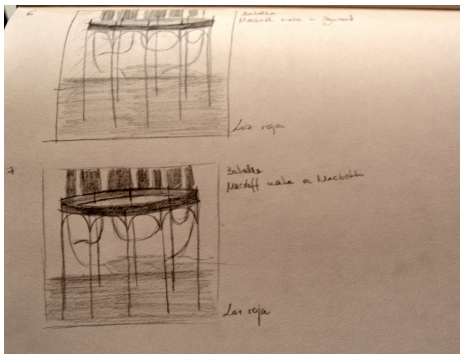 6
Batalla
Macbeth mata a
Luz roja
7
Batalla
Macduff mata a Macbeth
Luz roja